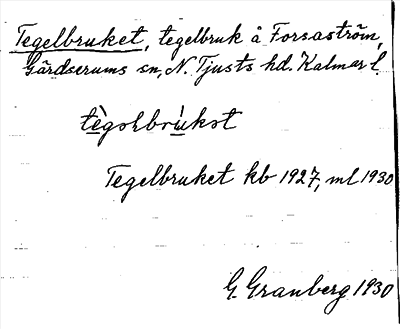 Tegelbruket, tegelbruk å Forsaström,
Gärdserums sn, N. Tjusts hd. Kalmar l.
tègəlbrùkət
Tegelbruket kb 1927, ml 1930
G. Granberg 1930